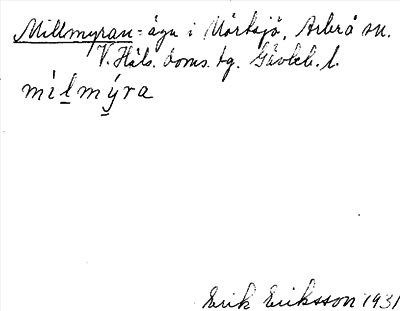 Millmyran = äga i Mörtsjö, Arbrå sn.
V. Häls. doms. tg. Gävleb. l.
mi̍lmýra
Erik Eriksson 1931